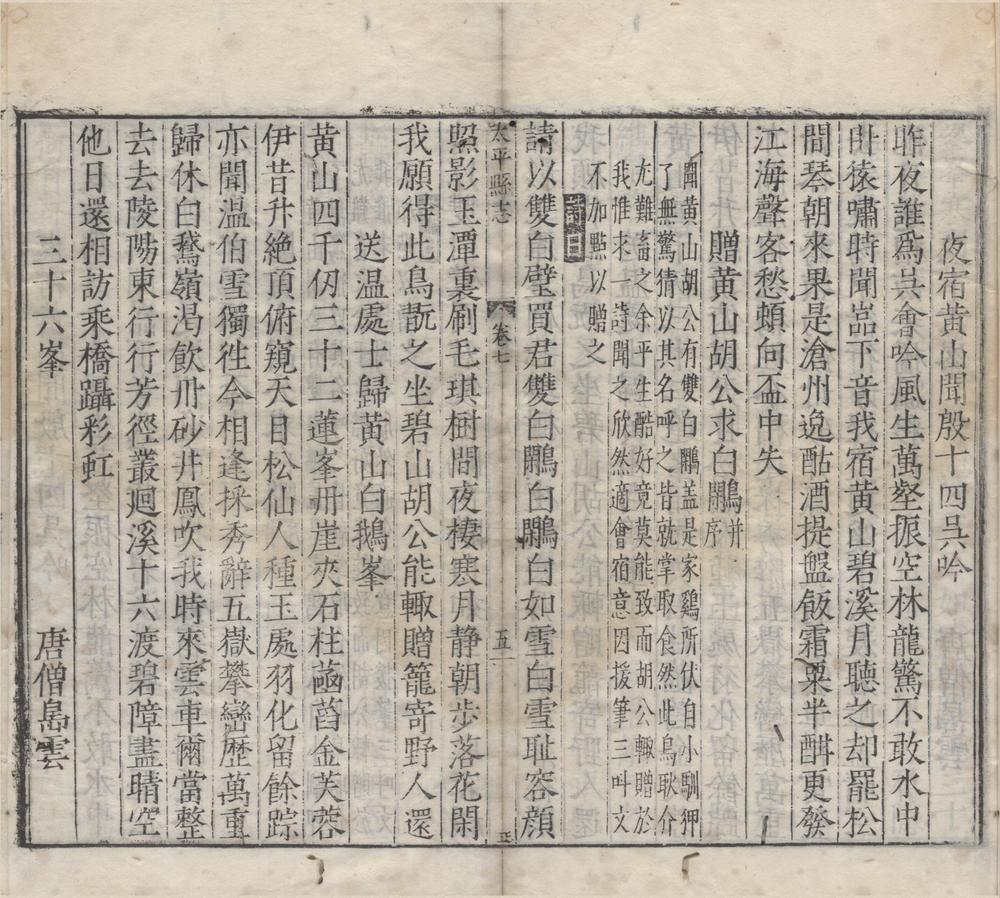 夜宿黄山聞殷十四吳吟
昨夜誰爲吳會吟風生萬壑振空林龍驚不敢水中
卧猿嘯時聞嵓下音我宿黄山碧溪月聽之却罷松
間琴朝來果是滄州逸酤酒提盤飯霜粟半酣更發
江海聲客愁頓向盃中失
贈黄山胡公求白鷴并序
聞黄山胡公有雙白鷴盖是家鷄所伏自小馴狎
了無驚猜以其名呼之皆就掌取食然此鳥耿介
尤難畜之余平生酷好竟莫能致而胡公輙贈於
我惟求一詩聞之欣然適會宿意因援筆三叫文
不加點以贈之
詩曰
請以雙白璧買君雙白鷴白鷴白如雪白雪耻容顔
太平縣志
卷七
五
照影玉潭裏刷毛琪樹間夜棲寒月静朝步落花閑
我願得此鳥翫之坐碧山胡公能輙贈籠寄野人還
送温處士歸黄山白鵝峯
黄山四千仞三十二蓮峯丹崖夾石柱菡萏金芙蓉
伊昔升絶頂俯窺天目松仙人種玉處羽化留餘踪
亦聞温伯雪獨徃今相逢採秀辭五嶽攀巒歴萬重
歸休白鵞嶺渴飲丹砂井鳳吹我時來雲車爾當整
去去陵陽東行行芳徑叢迴溪十六渡碧障盡晴空
他日還相訪乘橋躡彩虹
三十六峯
唐僧島雲